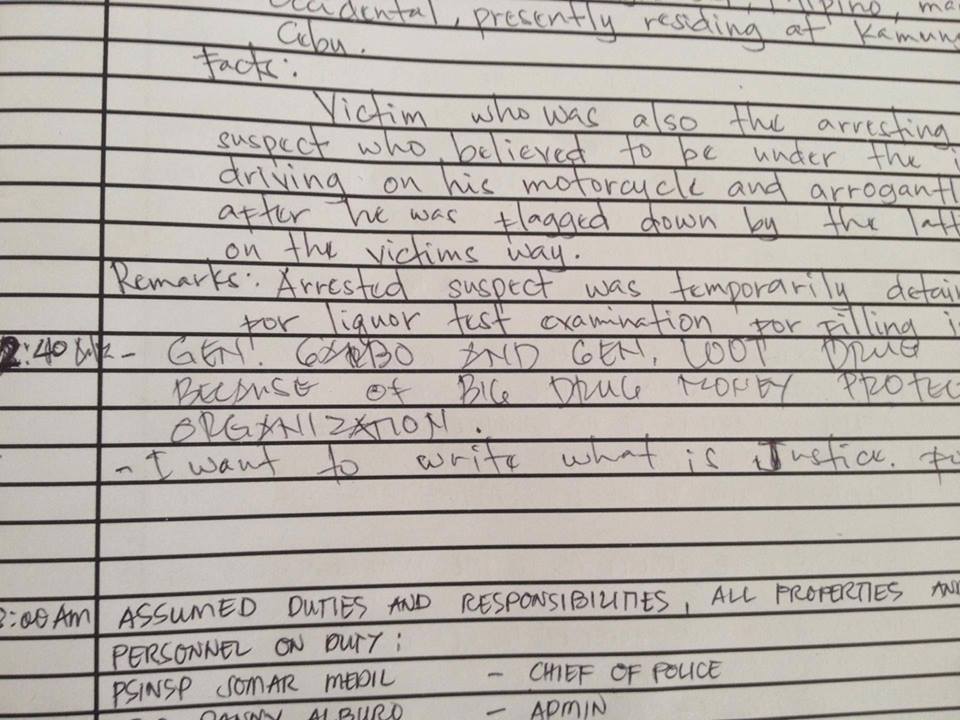 Occidental, presently residing at Kamung
Cebu.
Facts:
Victim who was also the arresting
suspect who believed to be under the i
driving on his motorcycle and arrogantl
after he was flagged down by the latt
on the victims way.
Remarks: Arrested suspect was temporarily detain
for liquor test examination for filling i
2:40 - GEN. AND GEN. LOOT DRUG
BECAUSE OF BIG DRUG MONEY PROTEC
ORGANIZATION.
- I want to write what is Justice. fo
8:00 AM ASSUMED DUTIES AND RESPONSIBILITIES, ALL PROPERTIES AND
PERSONNEL ON DUTY:
PSINSP JOMAR MEDIL - CHIEF OF POLICE
ALBURO - ADMIN